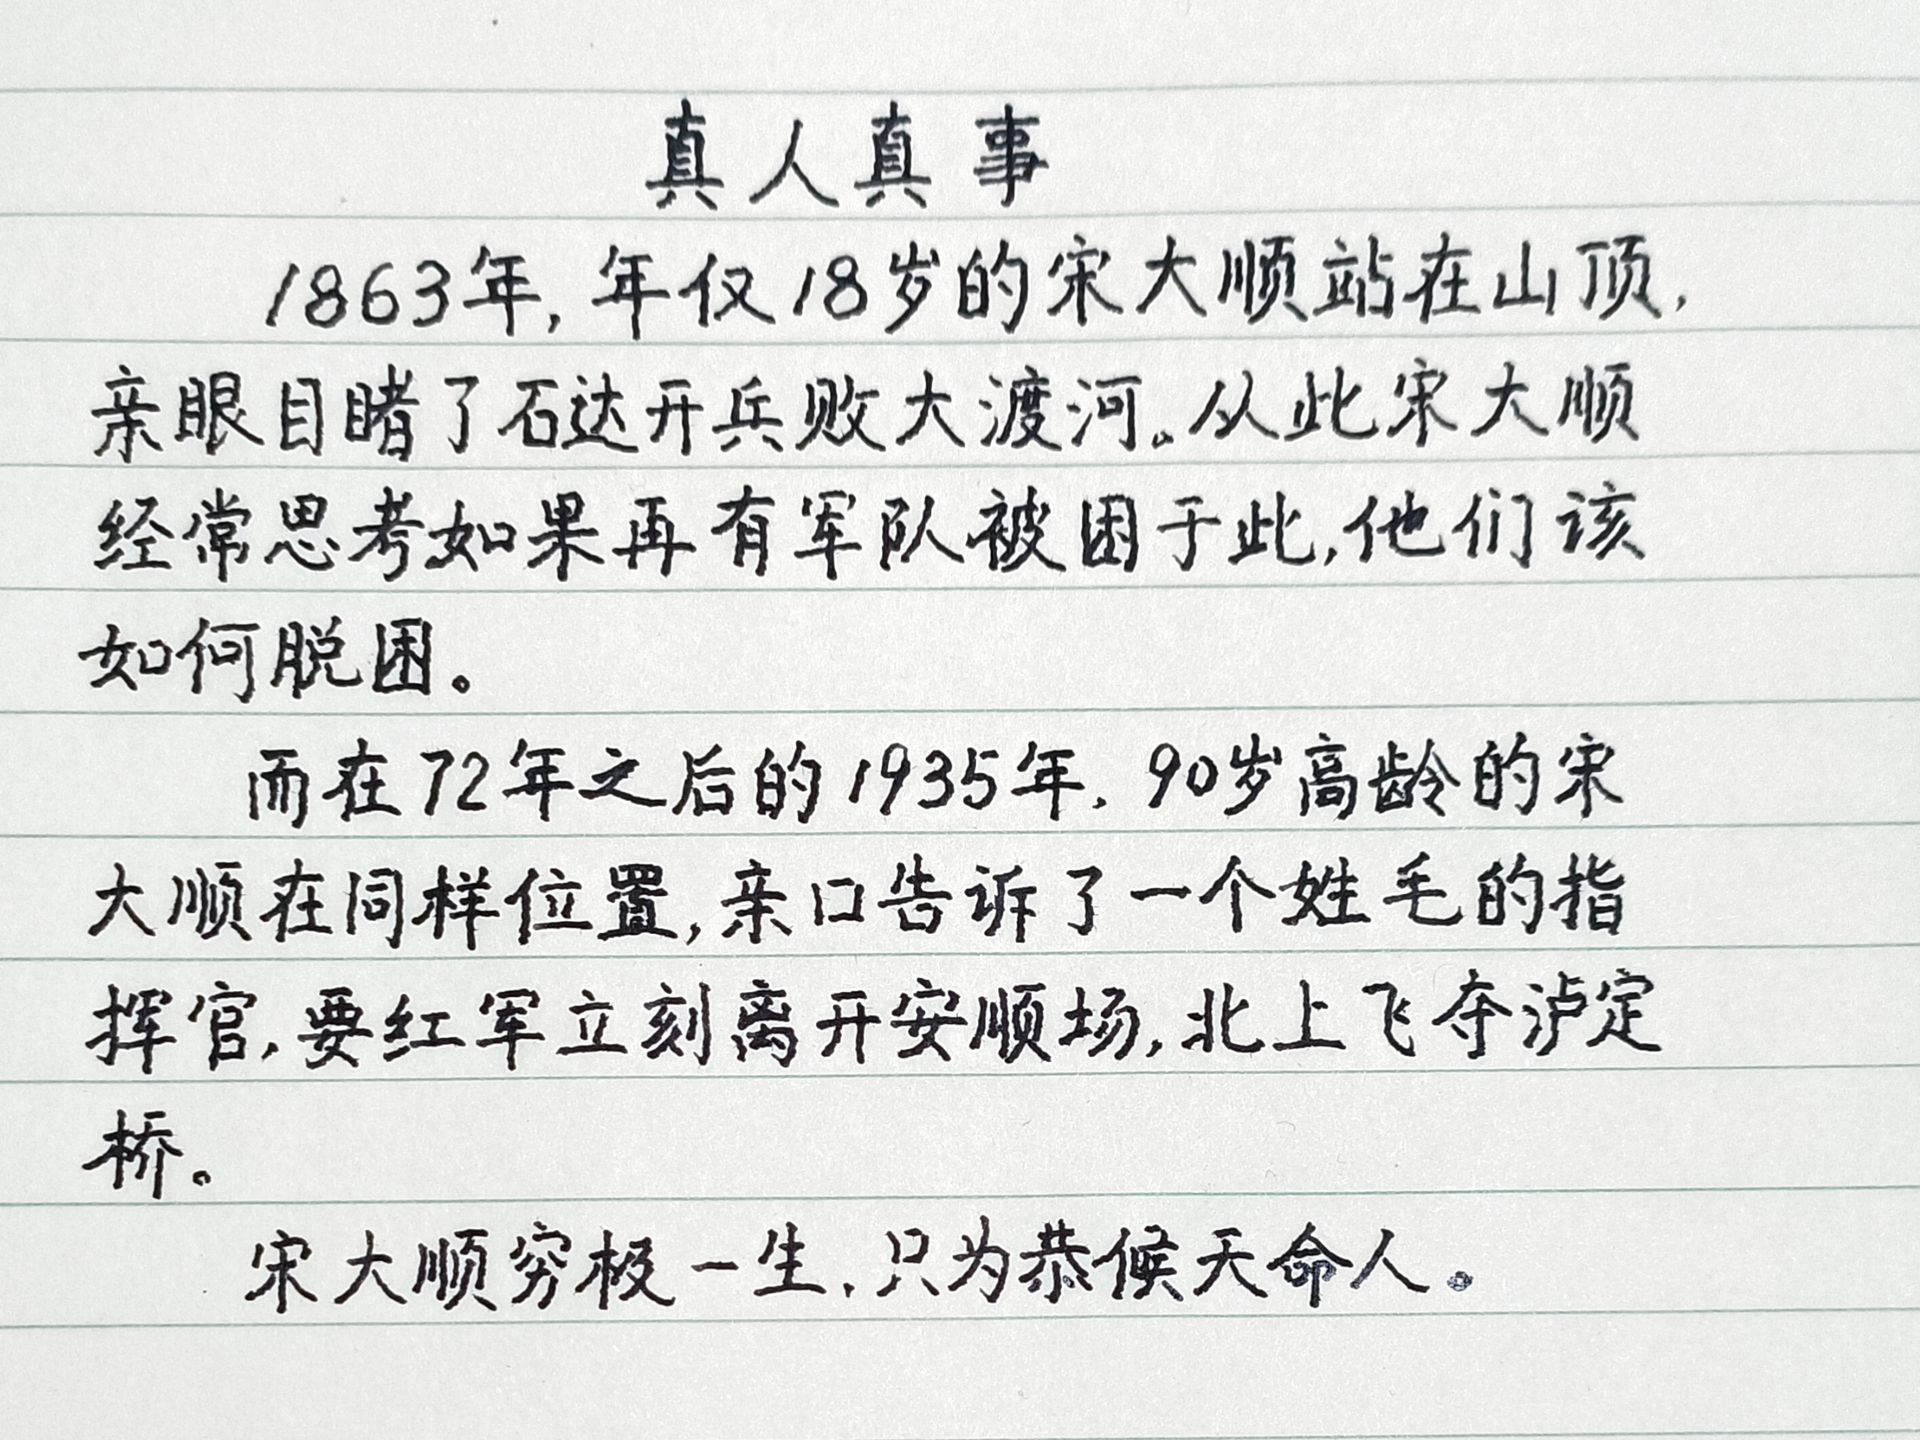 真人真事
1863年,年仅18岁的宋大顺站在山顶,
亲眼目睹了石达开兵败大渡河。从此宋大顺
经常思考如果再有军队被困于此,他们该
如何脱困。
而在72年之后的1935年,90岁高龄的宋
大顺在同样位置,亲口告诉了一个姓毛的指
挥官,要红军立刻离开安顺场,北上飞夺泸定
桥。
宋大顺穷极一生,只为恭候天命人。